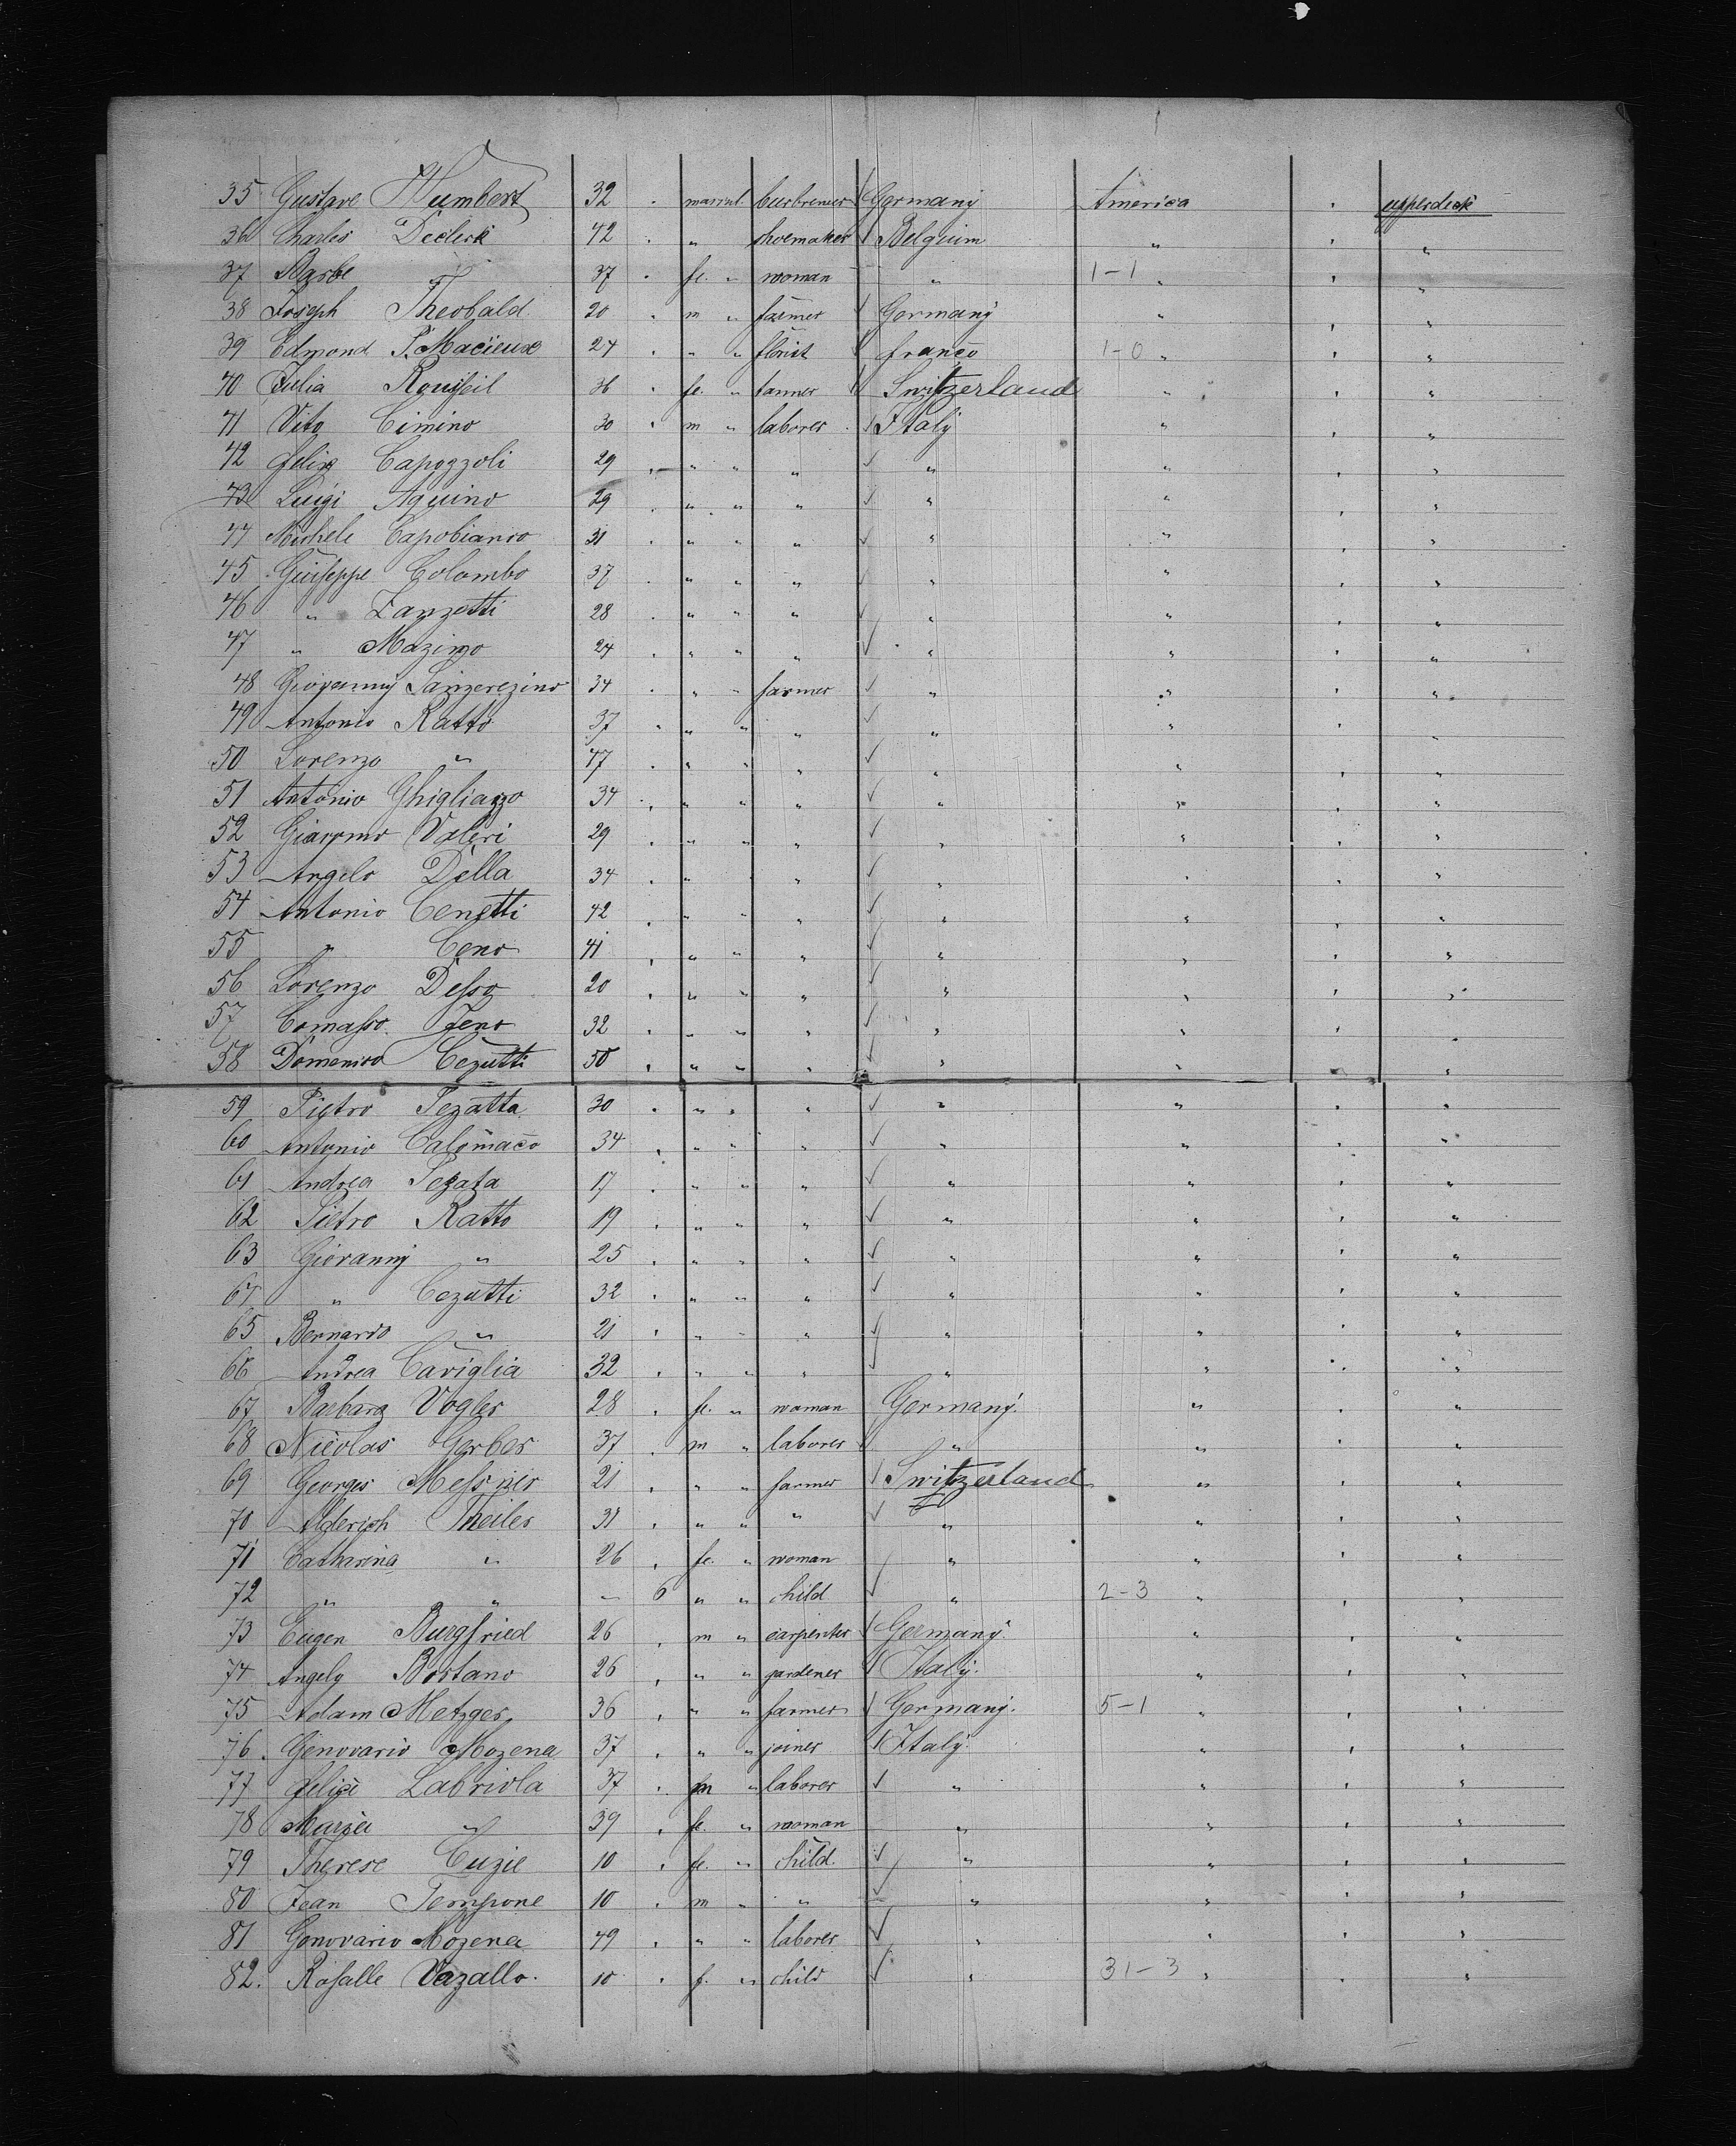 35 Gustave Humbert 32 . mascul. beerbrewer Germany America . upperdeck
36 Charles Decleck 42 . " shoemaker Belguim " . "
37 Barbe " 37 . fe. " woman " 1-1 " . "
38 Joseph Theobald 20 . m " farmer Germany " . "
39 Edmond P. Macieux 24 . " " florist france 1-0 " . "
40 Julia Roussel 36 . fe. " farmer Switzerland " . "
41 Vito Cimino 30 . m " laborer Italy " . "
42 felix Capozzoli 29 . " " " " " . "
43 Luigi Aquino 29 . " " " " " . "
44 Michele Capobianco 31 . " " " " " . "
45 Guiseppe Colombo 37 . " " " " " . "
46 " Zanzetti 28 . " " " " " . "
47 " Mazingo 24 . " " " " " . "
48 Giovanny Sanzerezino 34 . " " farmer " " . "
49 Antonio Ratto 37 . " " " " " . "
50 Lorenzo " 47 . " " " " " . "
51 Antonio Ghigliazzo 34 . " " " " " . "
52 Giacomo Valeri 29 . " " " " " . "
53 Angelo Della 34 . " " " " . "
54 Antonio Cenetti 42 . " " " " " . "
55 " Ceno 41 . " " " " " . "
56 Lorenzo Desso 20 . " " " " " . "
57 Comasso Feno 32 . " " " " " . "
58 Domenico Cezutti 50 . " " " " " . "
59 Pietro Pezatta 30 . " " " " " . "
60 Antonio Calomaco 34 . " " " " " . "
61 Andrea Pezata 17 . " " " " " . "
62 Pietro Ratto 19 . " " " " " . "
63 Giovanny " 25 . " " " " " . "
64 " Cezutti 32 . " " " " " . "
65 Bernardo " 21 . " " " " " . "
66 Andrea Caviglia 32 . " " " " " . "
67 Barbara Vogler 28 . fe. " woman Germany " . "
68 Nicolas Gerber 37 . m " laborer " " . "
69 Georges Messner 21 . " " farmer Switzerland " . "
70 Alderich Theiler 31 . " " " " " . "
71 Catharina " 26 . fe. " woman " " . "
72 " " - 6 " " child " 2-3 " . "
73 Eugen Burgfried 26 . m " carpenter Germany " . "
74 Angelo Bostano 26 . " " gardener Italy. " . "
75 Adam Metzger 36 . " " farmer Germany. 5-1 " . "
76. Genovario Mozena 37 . " " joiner Italy. " . "
77 felice Labriola 37 . m " laborer " " . "
78 " 39 . fe. " woman " " . "
79 Therese Cuzie 10 . fe. " child. " " . "
80 Jean Tempone 10 . m " " " " . "
81 Gonovario Mozena 49 . " " laborer " " . "
82. Rosalle Vazallo. 10 . f. " child " 31-3 " . "